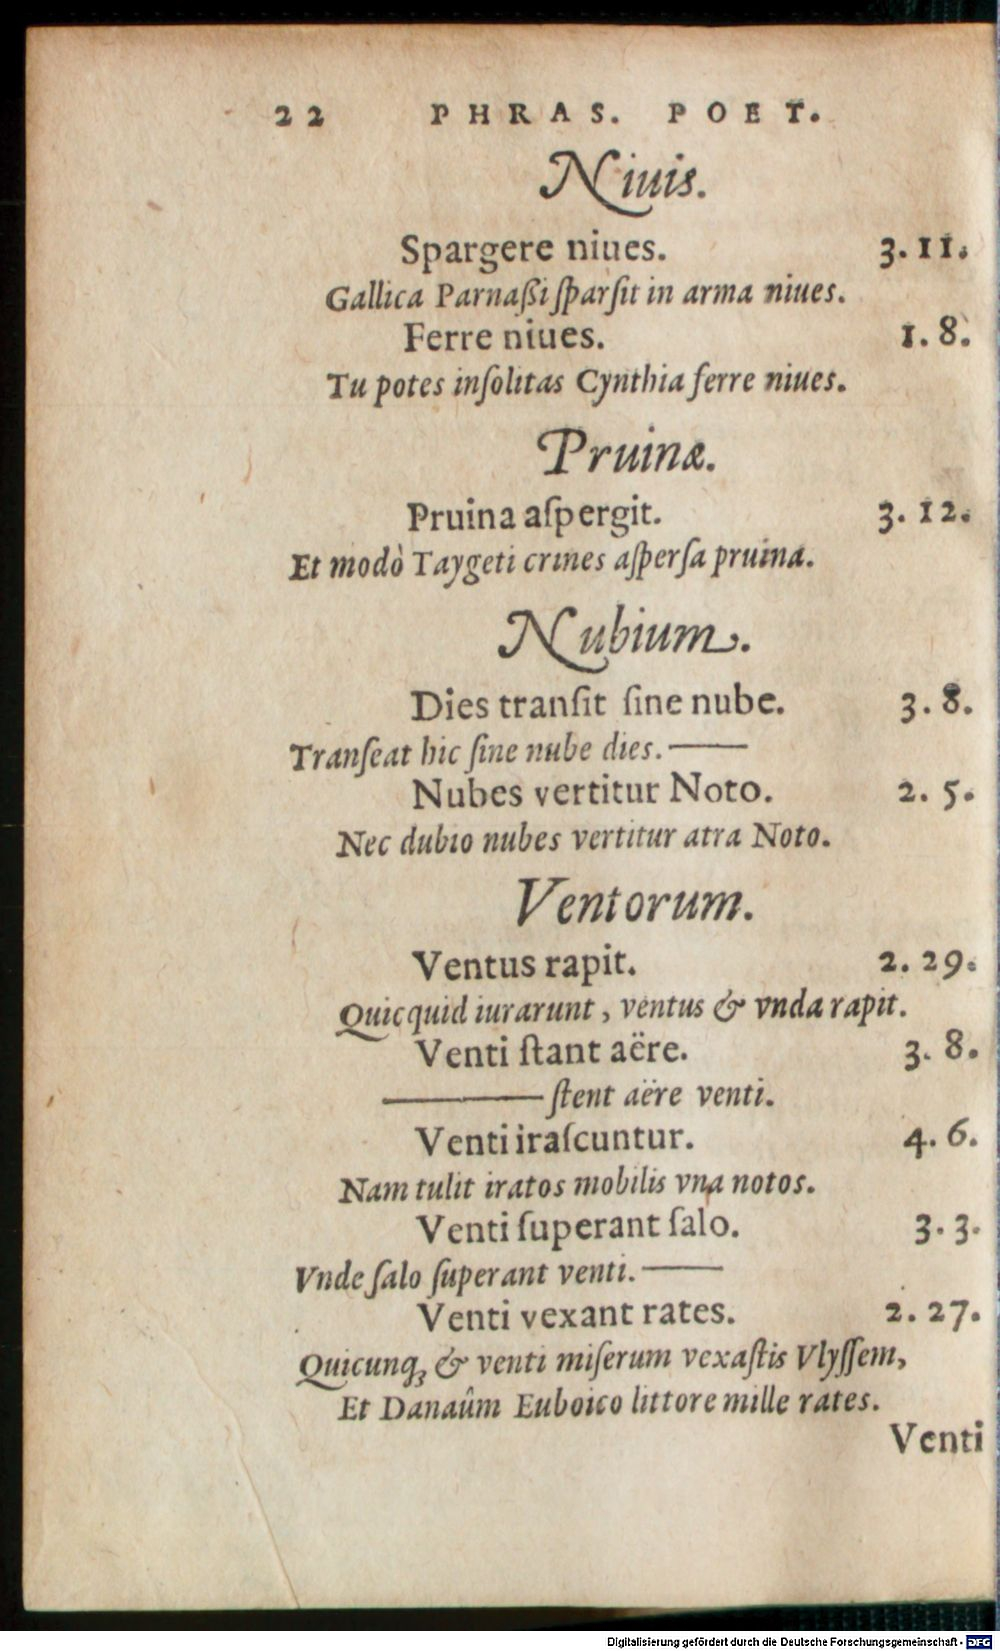 22 PHRAS. POET.
Niuis.
Spargere niues. 3. 11.
Gallica Parnaßi ſparſit in arma niues.
Ferre niues. 1. 8.
Tu potes inſolitas Cynthia ferre niues.
Pruinæ.
Pruina aſpergit. 3. 12.
Et modò Taygeti crines aſperſa pruina.
Nubium.
Dies tranſit ſine nube. 3. 8.
Tranſeat hic ſine nube dies. ——
Nubes vertitur Noto. 2. 5.
Nec dubio nubes vertitur atra Noto.
Ventorum.
Ventus rapit. 2. 29.
Quicquid iurarunt, ventus & vnda rapit.
Venti ſtant aëre. 3. 8.
—— ſtent aëre venti.
Venti iraſcuntur. 4. 6.
Nam tulit iratos mobilis vna notos.
Venti ſuperant ſalo. 3. 3.
Vnde ſalo ſuperant venti. ——
Venti vexant rates. 2. 27.
Quicunq; & venti miſerum vexaſtis Vlyſſem,
Et Danaûm Euboico littore mille rates.
Venti
Digitalisierung gefördert durch die Deutsche Forschungsgemeinschaft - DFG